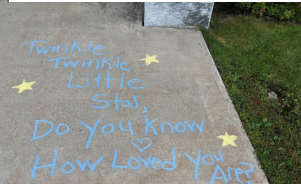 Twinkle
Twinkle
Little
Star,
Do You Know
How Loved You
Are?